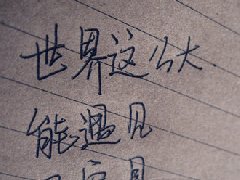 世界这么大
能遇见